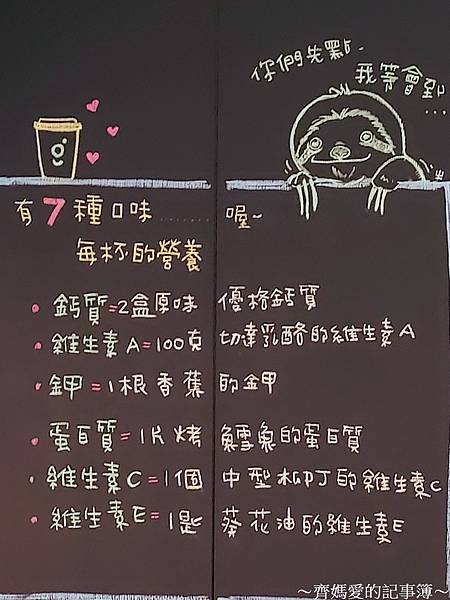 你們先點..
我等會到
...
g
有7種口味........喔~
每杯的營養
・鈣質=2盒原味優格鈣質
・維生素A=100克切達乳酪的維生素A
・鉀=1根香蕉的鉀
・蛋白質=1片烤鱈魚的蛋白質
・維生素C=1個中型柳丁的維生素C
・維生素E=1匙葵花油的維生素E
～齊媽愛的記事簿～